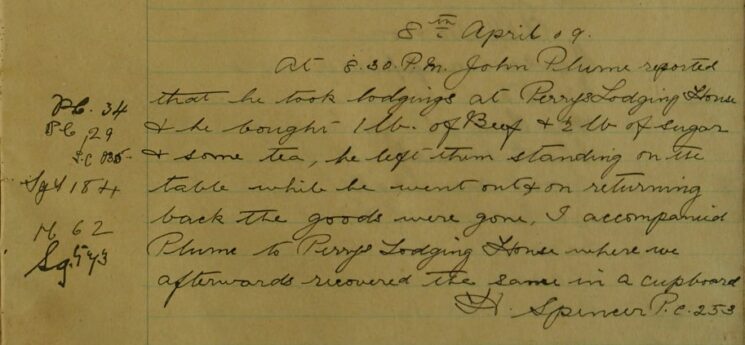 8th April 09.
At 8.30. P.M. John Plume reported
that he took lodgings at Perrys Lodging House
& he bought 1 lb. of Beef & 2 lb of sugar
& some tea, he left them standing on the
table while he went out & on returning
back the goods were gone, I accompanied
Plume to Perrys Lodging House where we
afterwards recovered the same in a cupboard
H. Spencer P.C. 253
P.C. 34
P C, 29
P.C
Sgt 184
62
Sgt